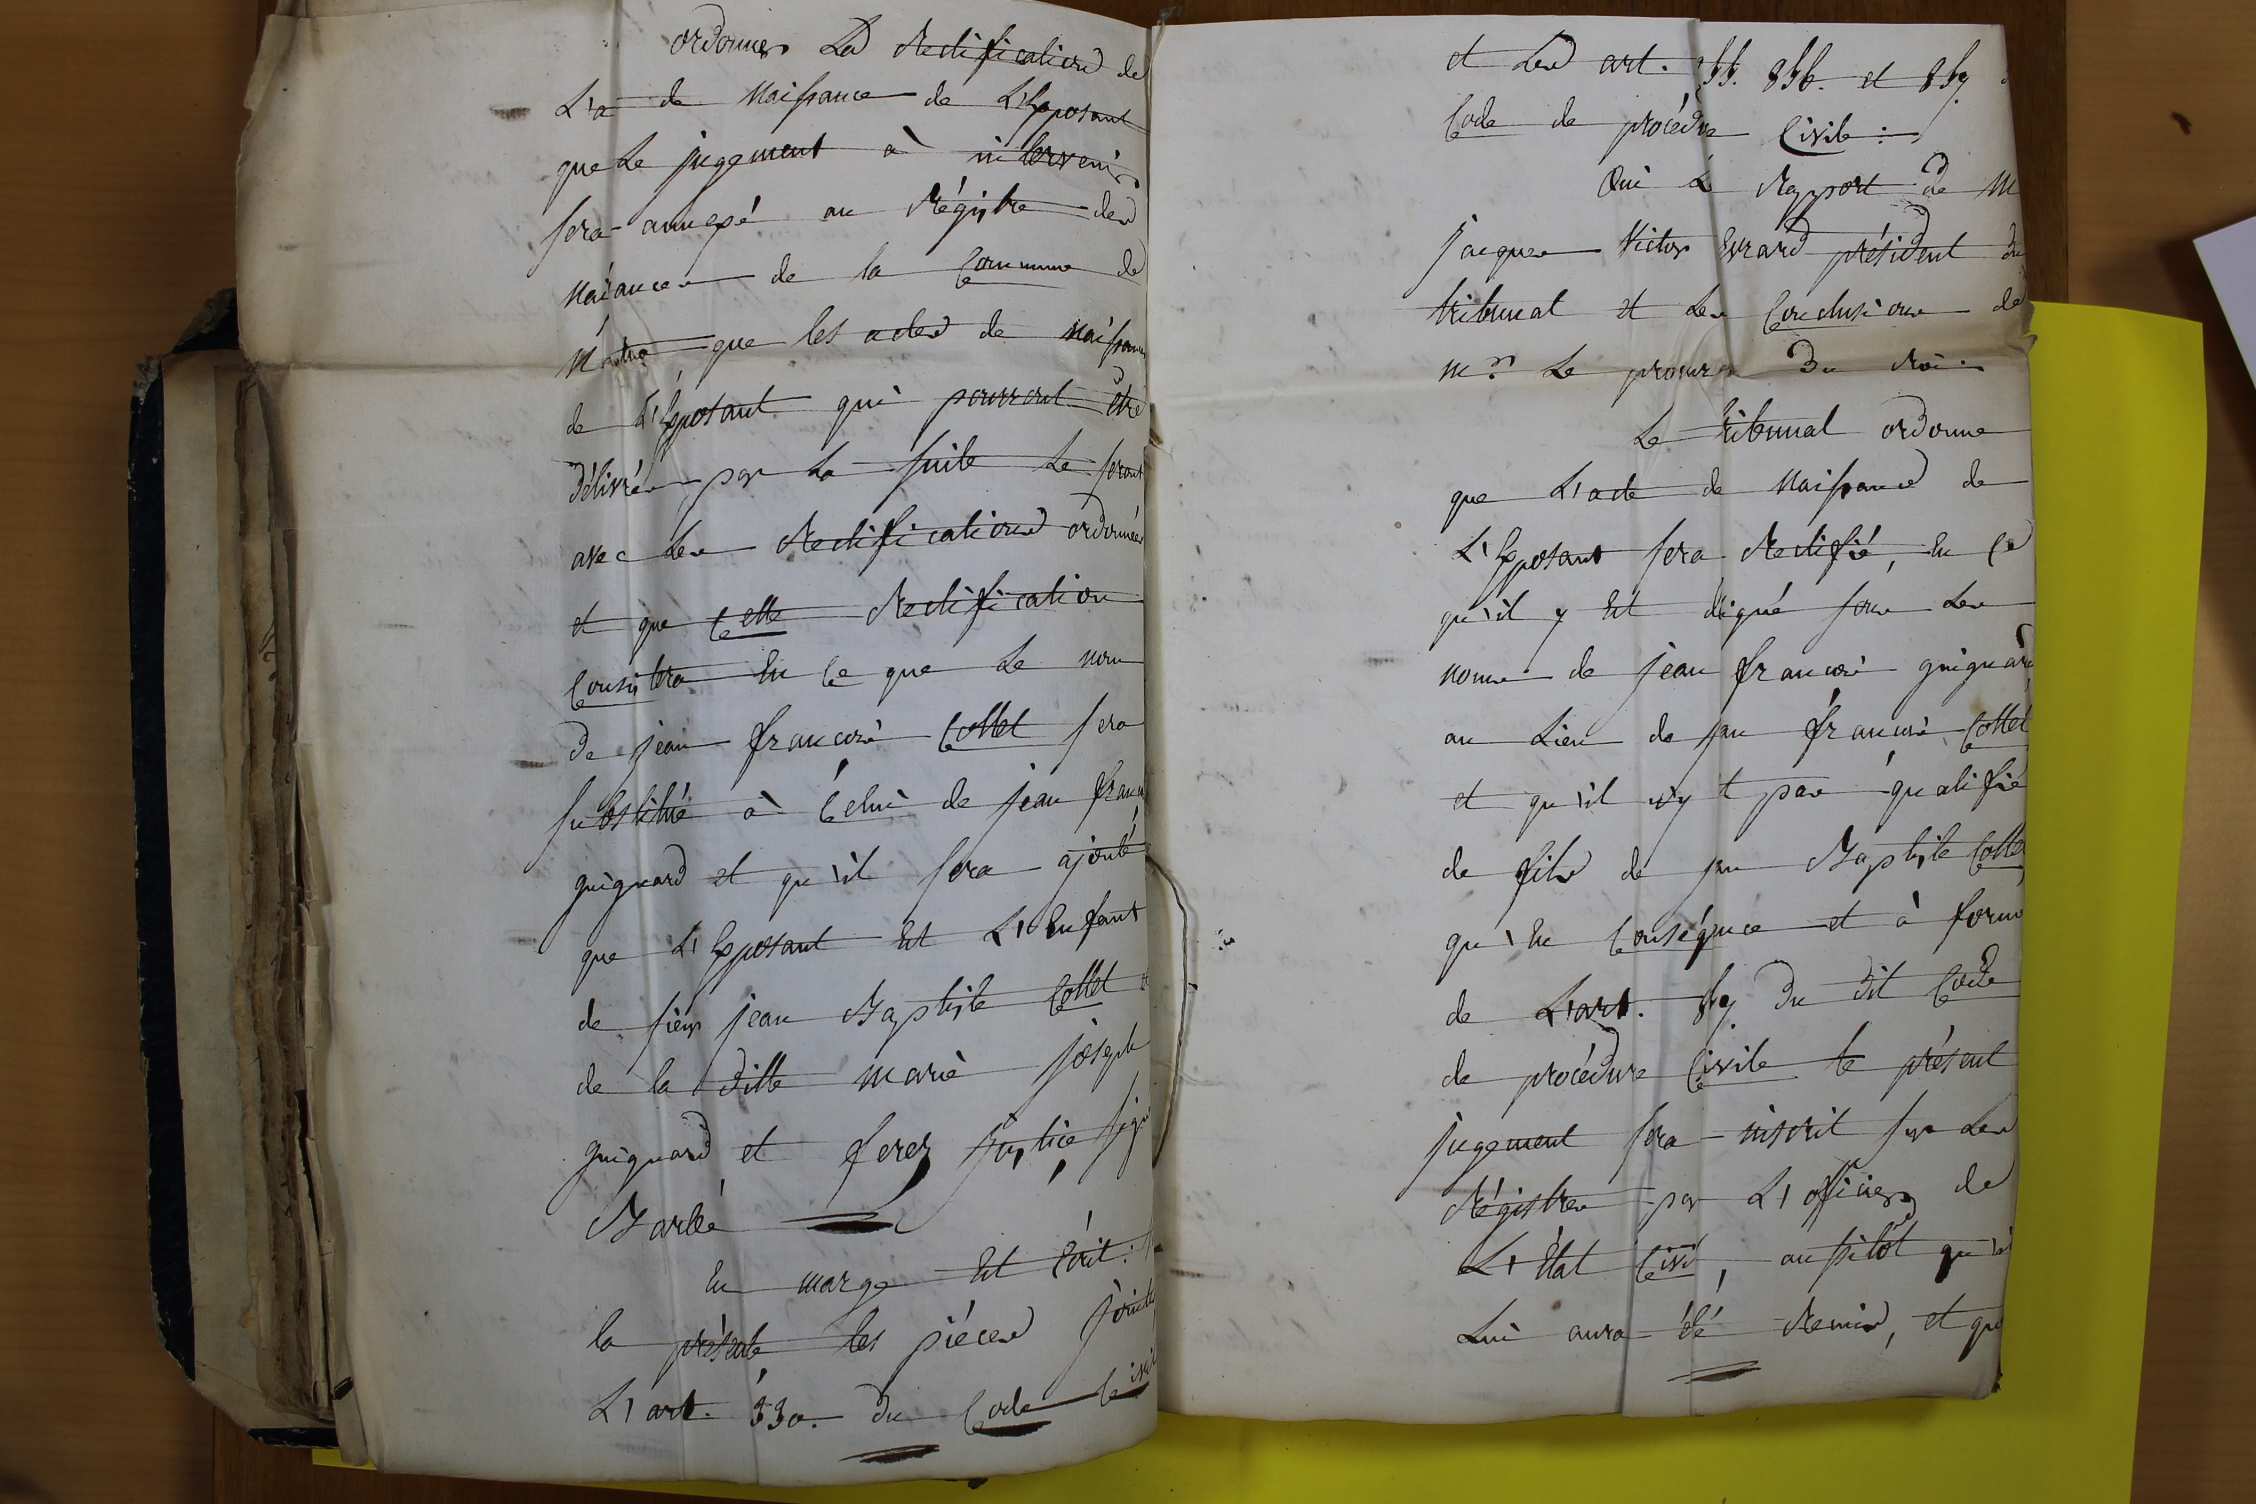 ordonner La Rectification de
L'a de Naissance de L'Exposant
que Le jugement à intervenir
sera annexé au Régistre des
Naiances de la Commune de
que les actes de Naissance
de L'Exposant qui pourront être
délivrés par La suite Le seront
avec Les Rectifications ordonnées
et que Cette Rectification
Consistera En Ce que Le nom
de jean françois Collet sera
substitué à Celui de jean franç
guignard et qu'il sera ajouté
que L'Exposant Est L'Enfant
de sieur jean Baptiste Collet et
de la ditte marie joseph
guignard et ferez justice signé
En marge Est Écrit:
la présente les piéces jointes
L'art. 330. du Code Civil
et Les art. 855. 856. et 857
Code de procédre Civile:
Oui Le Rapport de M
jacques Victor Evrard président du
tribunal et Les Conclusions de
Mr. Le procur du Roi.
Le tribunal ordonne
que L'acte de Naissance de
L'Exposant sera Rectifié, En Ce
qu'il y Est digné sous Les
noms de jean françois guignard
au Lieu de jean françois Collet
et qu'il n'y t pas qualifié
de fils de jean Baptiste Collet
qu'En Conséquence et à forme
de L'art. 857 du dit Code
de procédure Civile le présent
jugement sera inscrit sur Les
Régistres par L'officier de
L'État Civil, aussitôt qu'il
Lui aura été Remis, et que